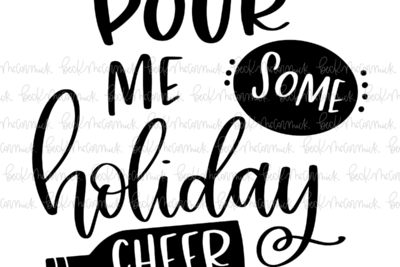 POUR
ME SOME
holiday
CHEER